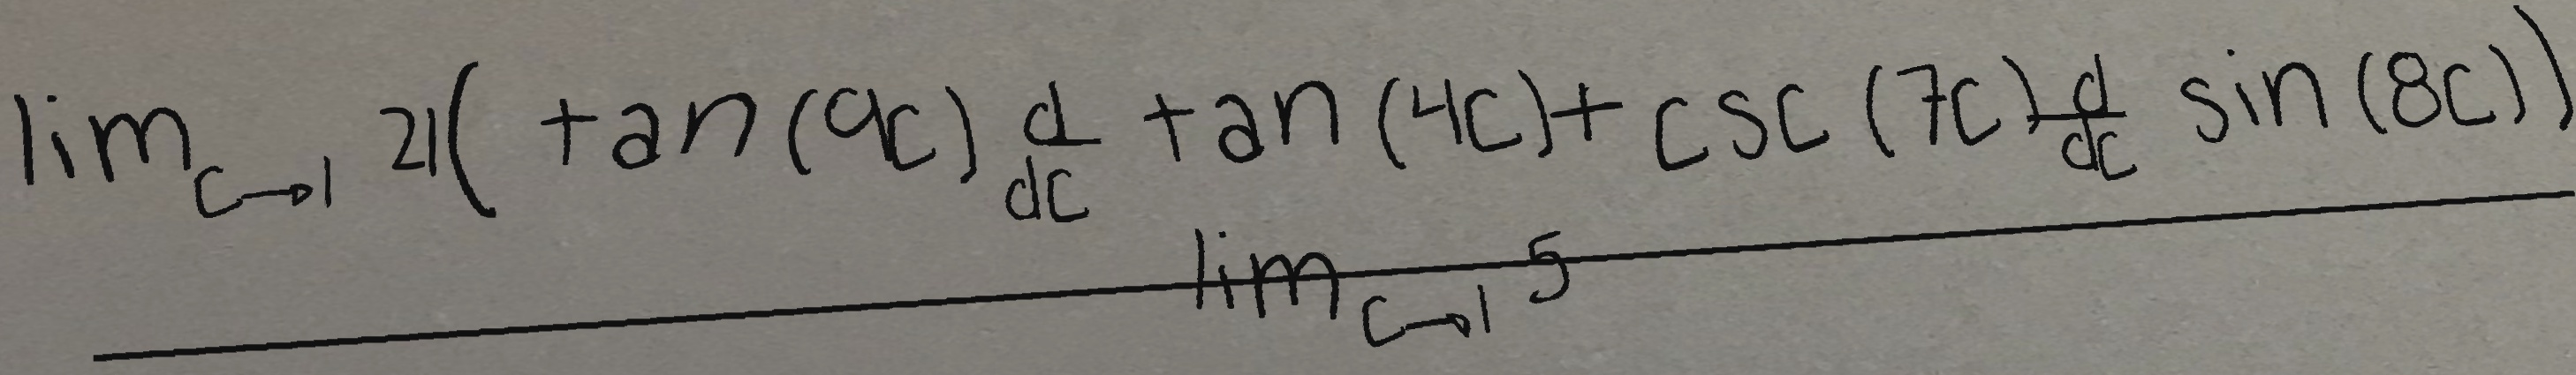 lim_{c→1} 21( tan(9c) \frac{d}{dc} tan(4c) + csc(7c) \frac{d}{dc} sin(8c))
lim_{c→1} 5